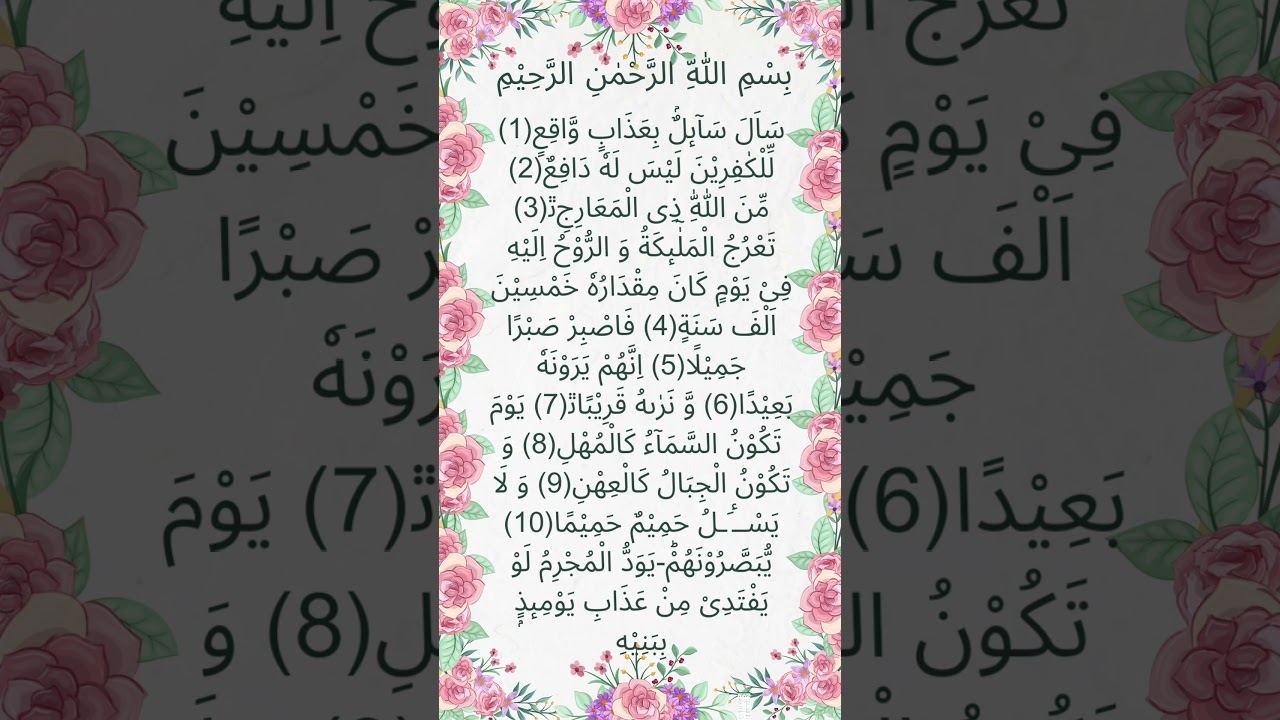 بِسْمِ اللّٰهِ الرَّحْمٰنِ الرَّحِيْمِ
سَاَلَ سَآىٕلٌۢ بِعَذَابٍ وَّاقِعٍ(1)
لِّلْكٰفِرِیْنَ لَیْسَ لَهٗ دَافِعٌ(2)
مِّنَ اللّٰهِ ذِی الْمَعَارِجِﭤ(3)
تَعْرُجُ الْمَلٰٓىٕكَةُ وَ الرُّوْحُ اِلَیْهِ
فِیْ یَوْمٍ كَانَ مِقْدَارُهٗ خَمْسِیْنَ
اَلْفَ سَنَةٍ(4) فَاصْبِرْ صَبْرًا
جَمِیْلًا(5) اِنَّهُمْ یَرَوْنَهٗ
بَعِیْدًا(6) وَّ نَرٰىهُ قَرِیْبًاﭤ(7) یَوْمَ
تَكُوْنُ السَّمَآءُ كَالْمُهْلِ(8) وَ
تَكُوْنُ الْجِبَالُ كَالْعِهْنِ(9) وَ لَا
یَسْــٴَـلُ حَمِیْمٌ حَمِیْمًا(10)
یُّبَصَّرُوْنَهُمْؕ-یَوَدُّ الْمُجْرِمُ لَوْ
یَفْتَدِیْ مِنْ عَذَابِ یَوْمِىٕذٍۭ
بِبَنِیْهِ